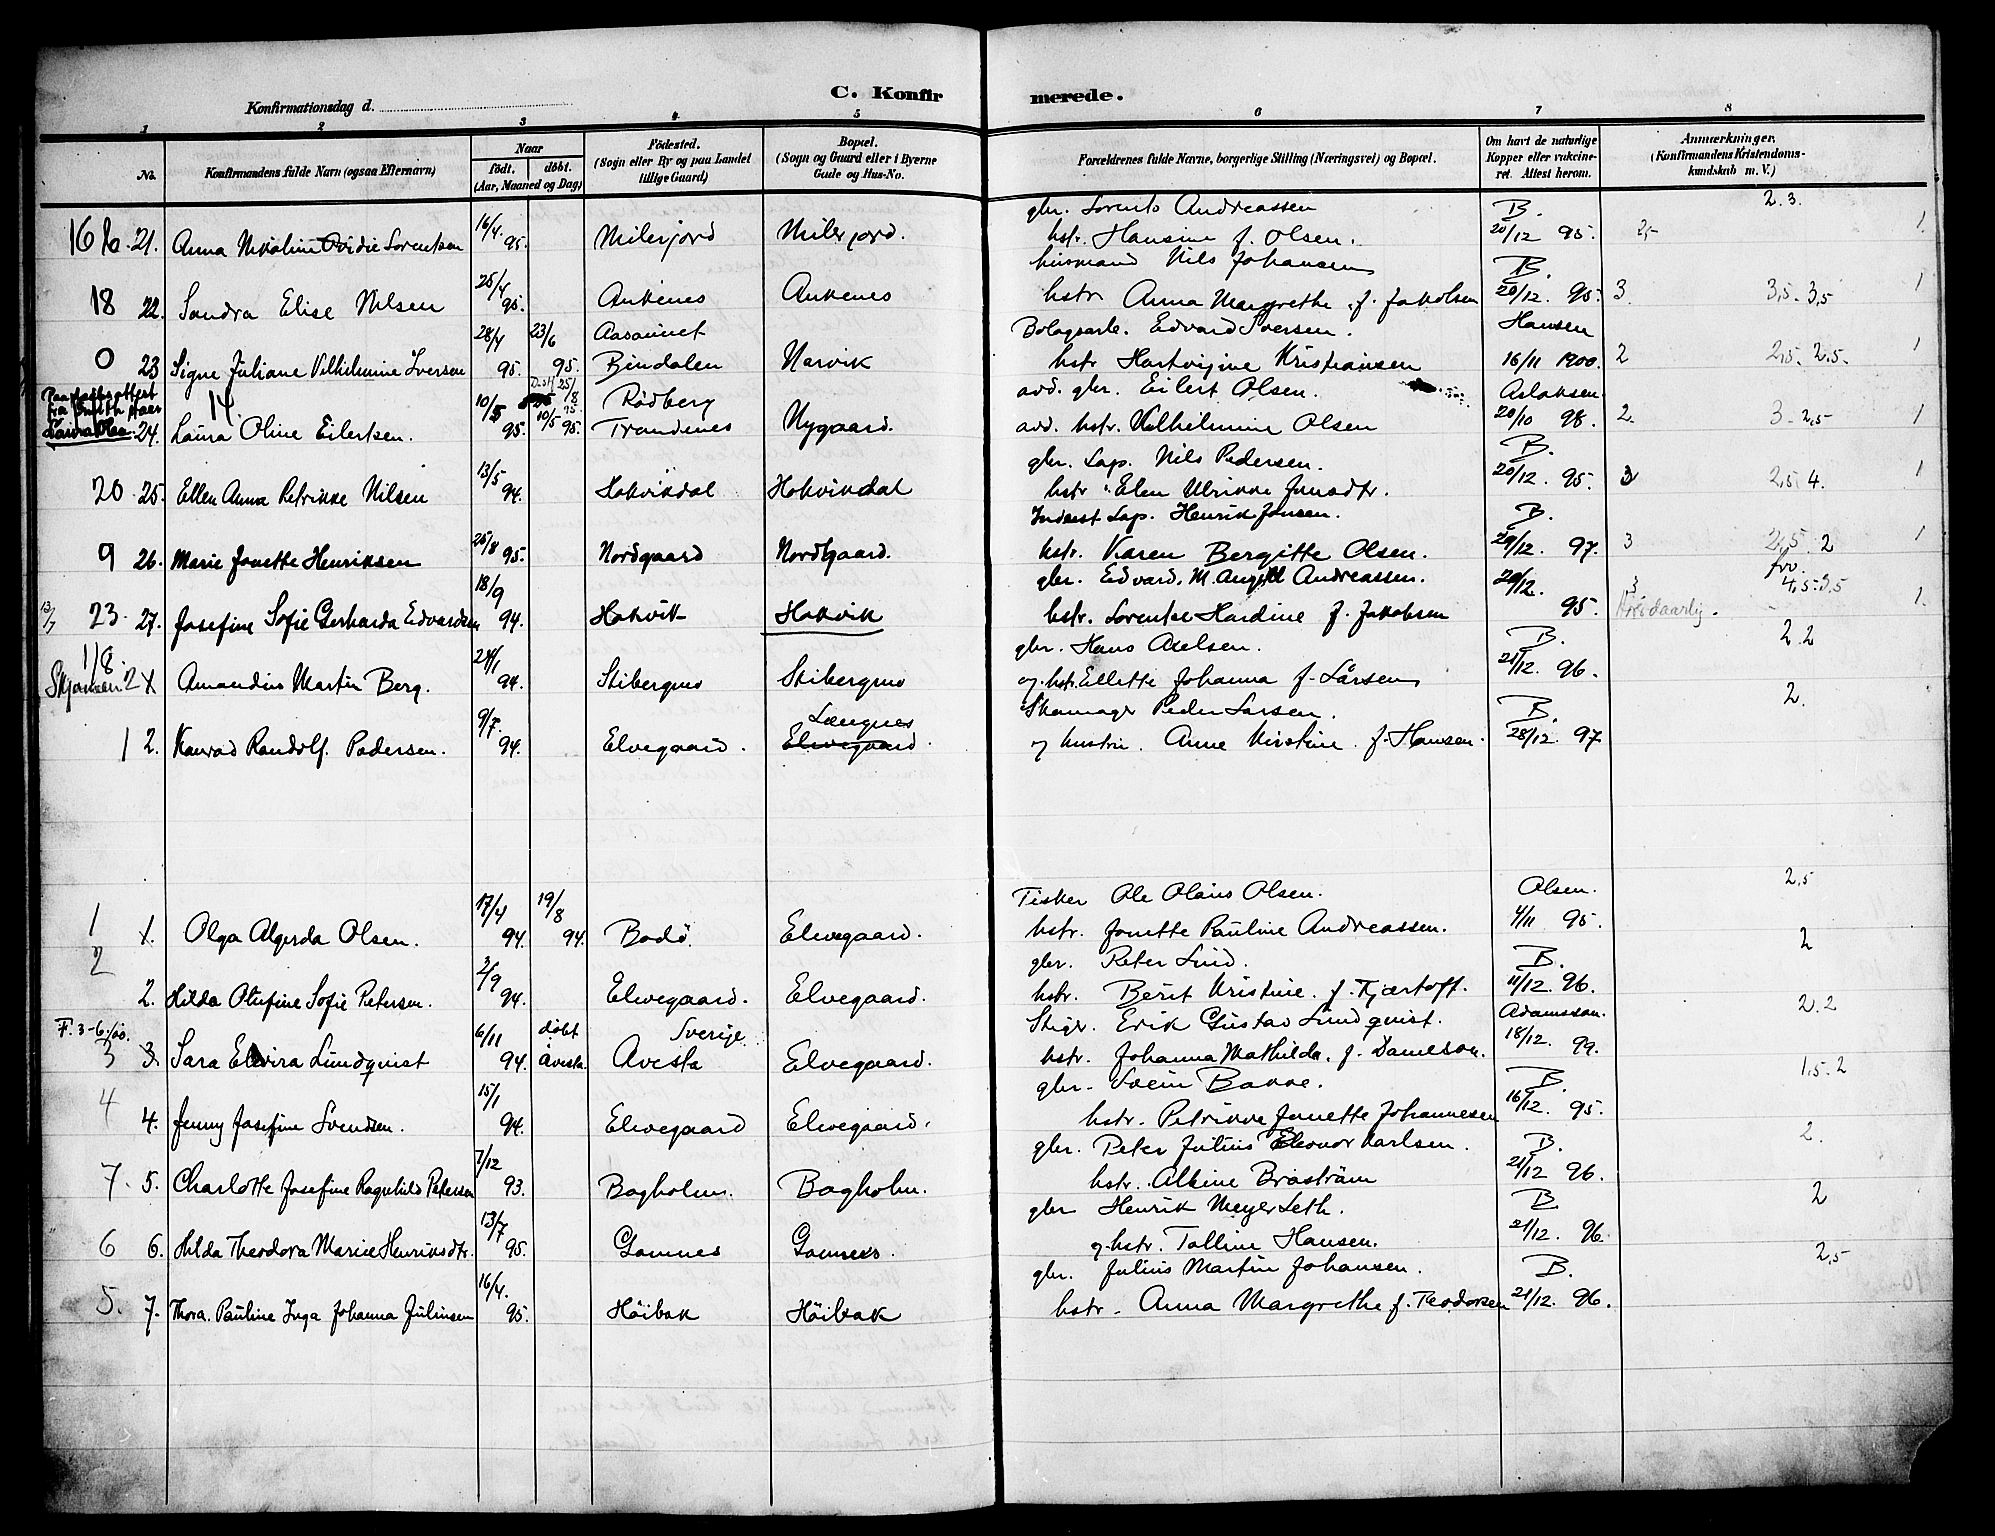 C. Konfirmerede.
Konfirmationsdag d.
1 2 3 4 5 6 7 8
No. Konfirmandens fulde Navn (ogsaa Efternavn) Naar født. døbt. (Aar, Maaned og Dag) Födested. (Sogn eller By og paa Landet tillige Gaard) Bopæl. (Sogn og Gaard eller i Byerne Gade og Hus-No. Forældrenes fulde Navne, borgerlige Stilling (Næringsvei) og Bopæl. Om havt de naturlige Kopper eller vakcineret. Attest herom. Anmærkninger. (Konfirmandens Kristendomskundskab m. V.)
gbr. Sorents Andreassen B. 2.3.
21. Anna Nikoline Sorentsen 16/4 95. Milerjord Milerjord. hstr. Hansine f. Olsen. 20/12 95. 1.
husmand Nils Johansen B.
18 22. Sandra Elise Nilsen 25/4 95. Ankenes Ankenes hstr Anna Margrethe f. Jakobsen 20/12. 95. 3. 3,5. 3,5 1
28/4 23/6 Bolagsarb. Edvard Iversen. Hansen
0 23 Signe Juliane Vilhelmine Iversen 95. 95. Bindalen Narvik hstr Hartvigine Kristiansen 16/11 1900. 2 2,5. 2,5. 1
14. Rödberg avd. gbr. Eilert Olsen. Aslaksen
24. Laura Oline Eilertsen. 10/5 95. 10/5 95. Trondenes Nygaard. avd. hstr. Vilhelmine Olsen 20/10 98. 2. 3 2,5 1
gbr. Lap. Nils Pedersen. B.
20 25. Ellen Anna Petrikke Nilsen 13/5 94. Hakvikdal Hakvikdal hstr Elen Ulrikke Jonsdtr. 20/12. 95. 3 2,5 4. 1
Inderst Lap. Henrik Jonsen. B.
9 26. Marie Jonette Henriksen 26/8 95. Nordgaard Nordgaard. hstr. Karen Bergitte Olsen. 29/12. 97. 3 2,5. 2 1
gbr. Edvard. M. Andreassen. 20/12.
23. 27. Josefine Sofie Gerharda Edvardsen 18/9 94. Hakvik Hakvik hstr. Sorentse Hardine f. Jakobsen 95. 4,5. 3,5 1.
1/8. gbr. Hans Axelsen. B. 2.2
Skjomen. Amandus Martin Berg. 94. Stibergmo Stibergmo og hstr. Ellette Johanna f. Larsen 21/12. 96.
Længnes Skomager Peder Larsen. B. 2.
1 2. Konrad Randolf Pedersen. 9/7. 94. Elvegaard. Elvegaard. og hustru. Anne Kirstine f. Hansen. 28/12. 97
Tisker Ole Olaus Olsen. Olsen. 2,5
1 1. Olga Algerda Olsen. 17/4 94. 19/8 94. Bodö. Elvegaard. hstr. Jonette Pauline Andreassen. 4/11 95.
2 gbr. Peter Lind. B. 2
2. Hilda Olufine Sofie Petersen. 2/9 94. Elvegaard. Elvegaard. hstr. Berit Kristine. f. Fjærtoft. 11/12. 96.
6/11 döbt Sverige Stigr. Erik Gustav Lundquist. Adamsson. 2.2
3 3. Sara Elvira Lundquist 94. Avesta. Avesta Elvegaard. hstr. Johanna Mathilda. f. Danielson. 18/12. 99.
4 gbr. Svein Bakke. B. 1,5. 2
4. Jenny Josefine Svendsen. 15/1 94. Elvegaard Elvegaard. hstr. Petrikke Jonette Johannesen 16/12. 95.
gbr. Peter Julius Eleonor Karlsen. B. 2.
7. 5. Charlotte Josefine Ragnhild Petersen 7/12 93. Bogholm. Bogholm. hstr. Albine Broström 21/12 96.
gbr Henrik Meyer Seth. B. 2
6 6. Hilda Theodora Marie Henriksdtr. 13/7 95. Gamnes Gamnes. og hstr. Talline Hansen. 21/12. 96.
gbr. Julius Martin Johansen. B. 2,5
5. 7. Thora. Pauline Inga Johanna Juliussen 16/4. 95. Höibak Höibak hstr. Anna Margrethe f. Teodorsen 21/12. 96.